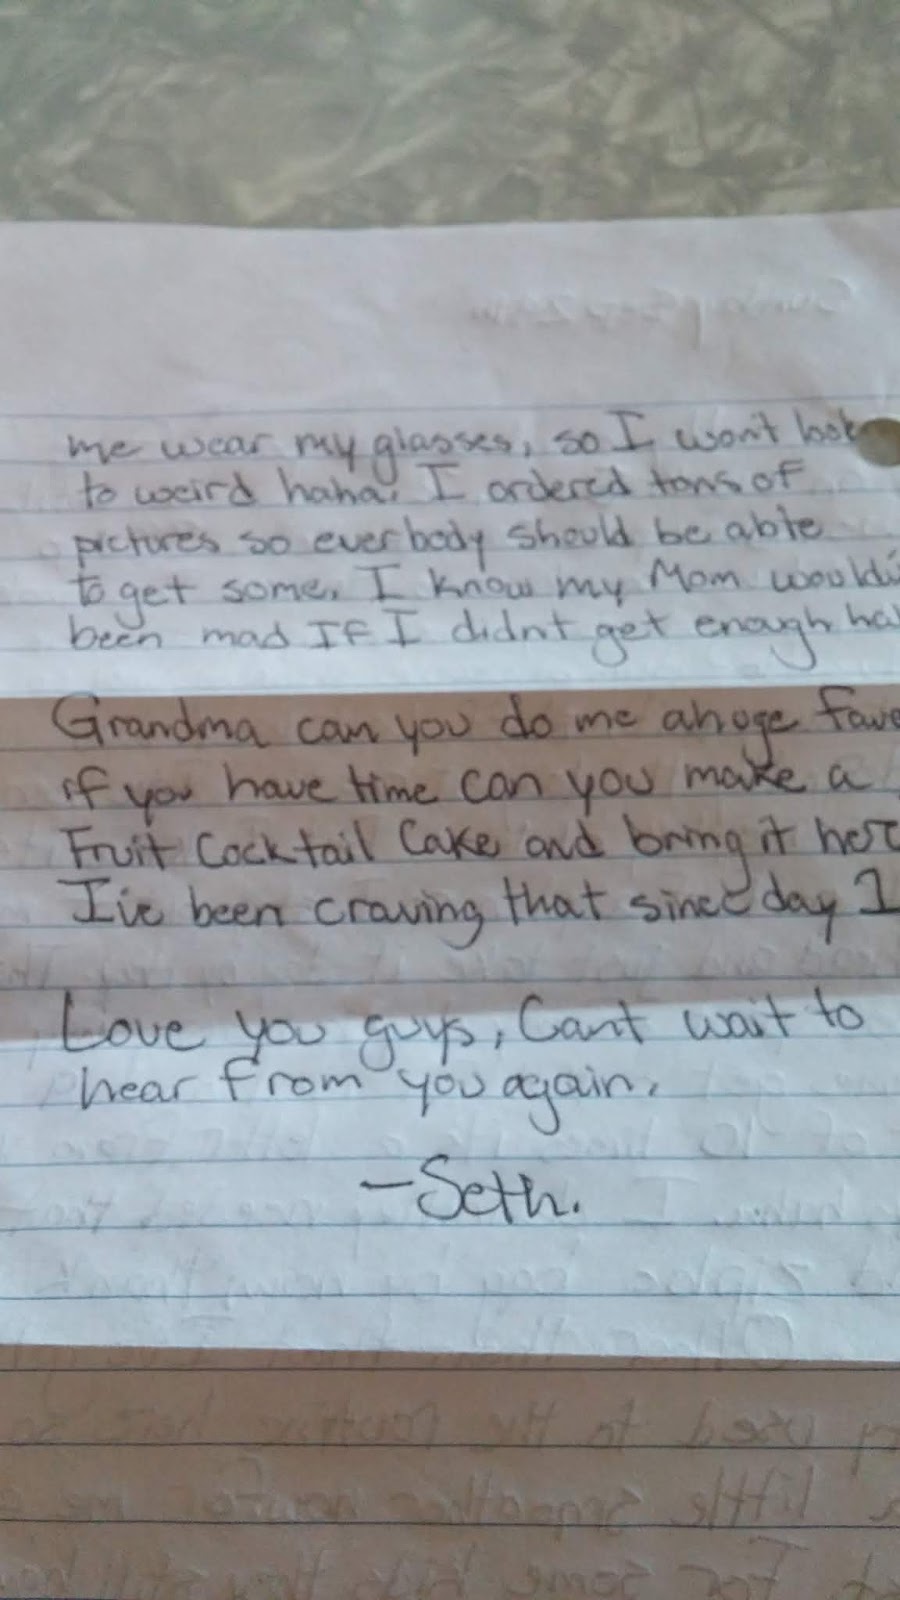 me wear my glasses, so I won't look
to weird haha. I ordered tons of
pictures so everbody should be able
to get some. I know my Mom
been mad If I didnt get enough
Grandma can you do me a huge
if you have time can you make a
Fruit Cocktail Cake and bring it
I've been craving that since day 1
Love you guys, Cant wait to
hear from you again.
-Seth.